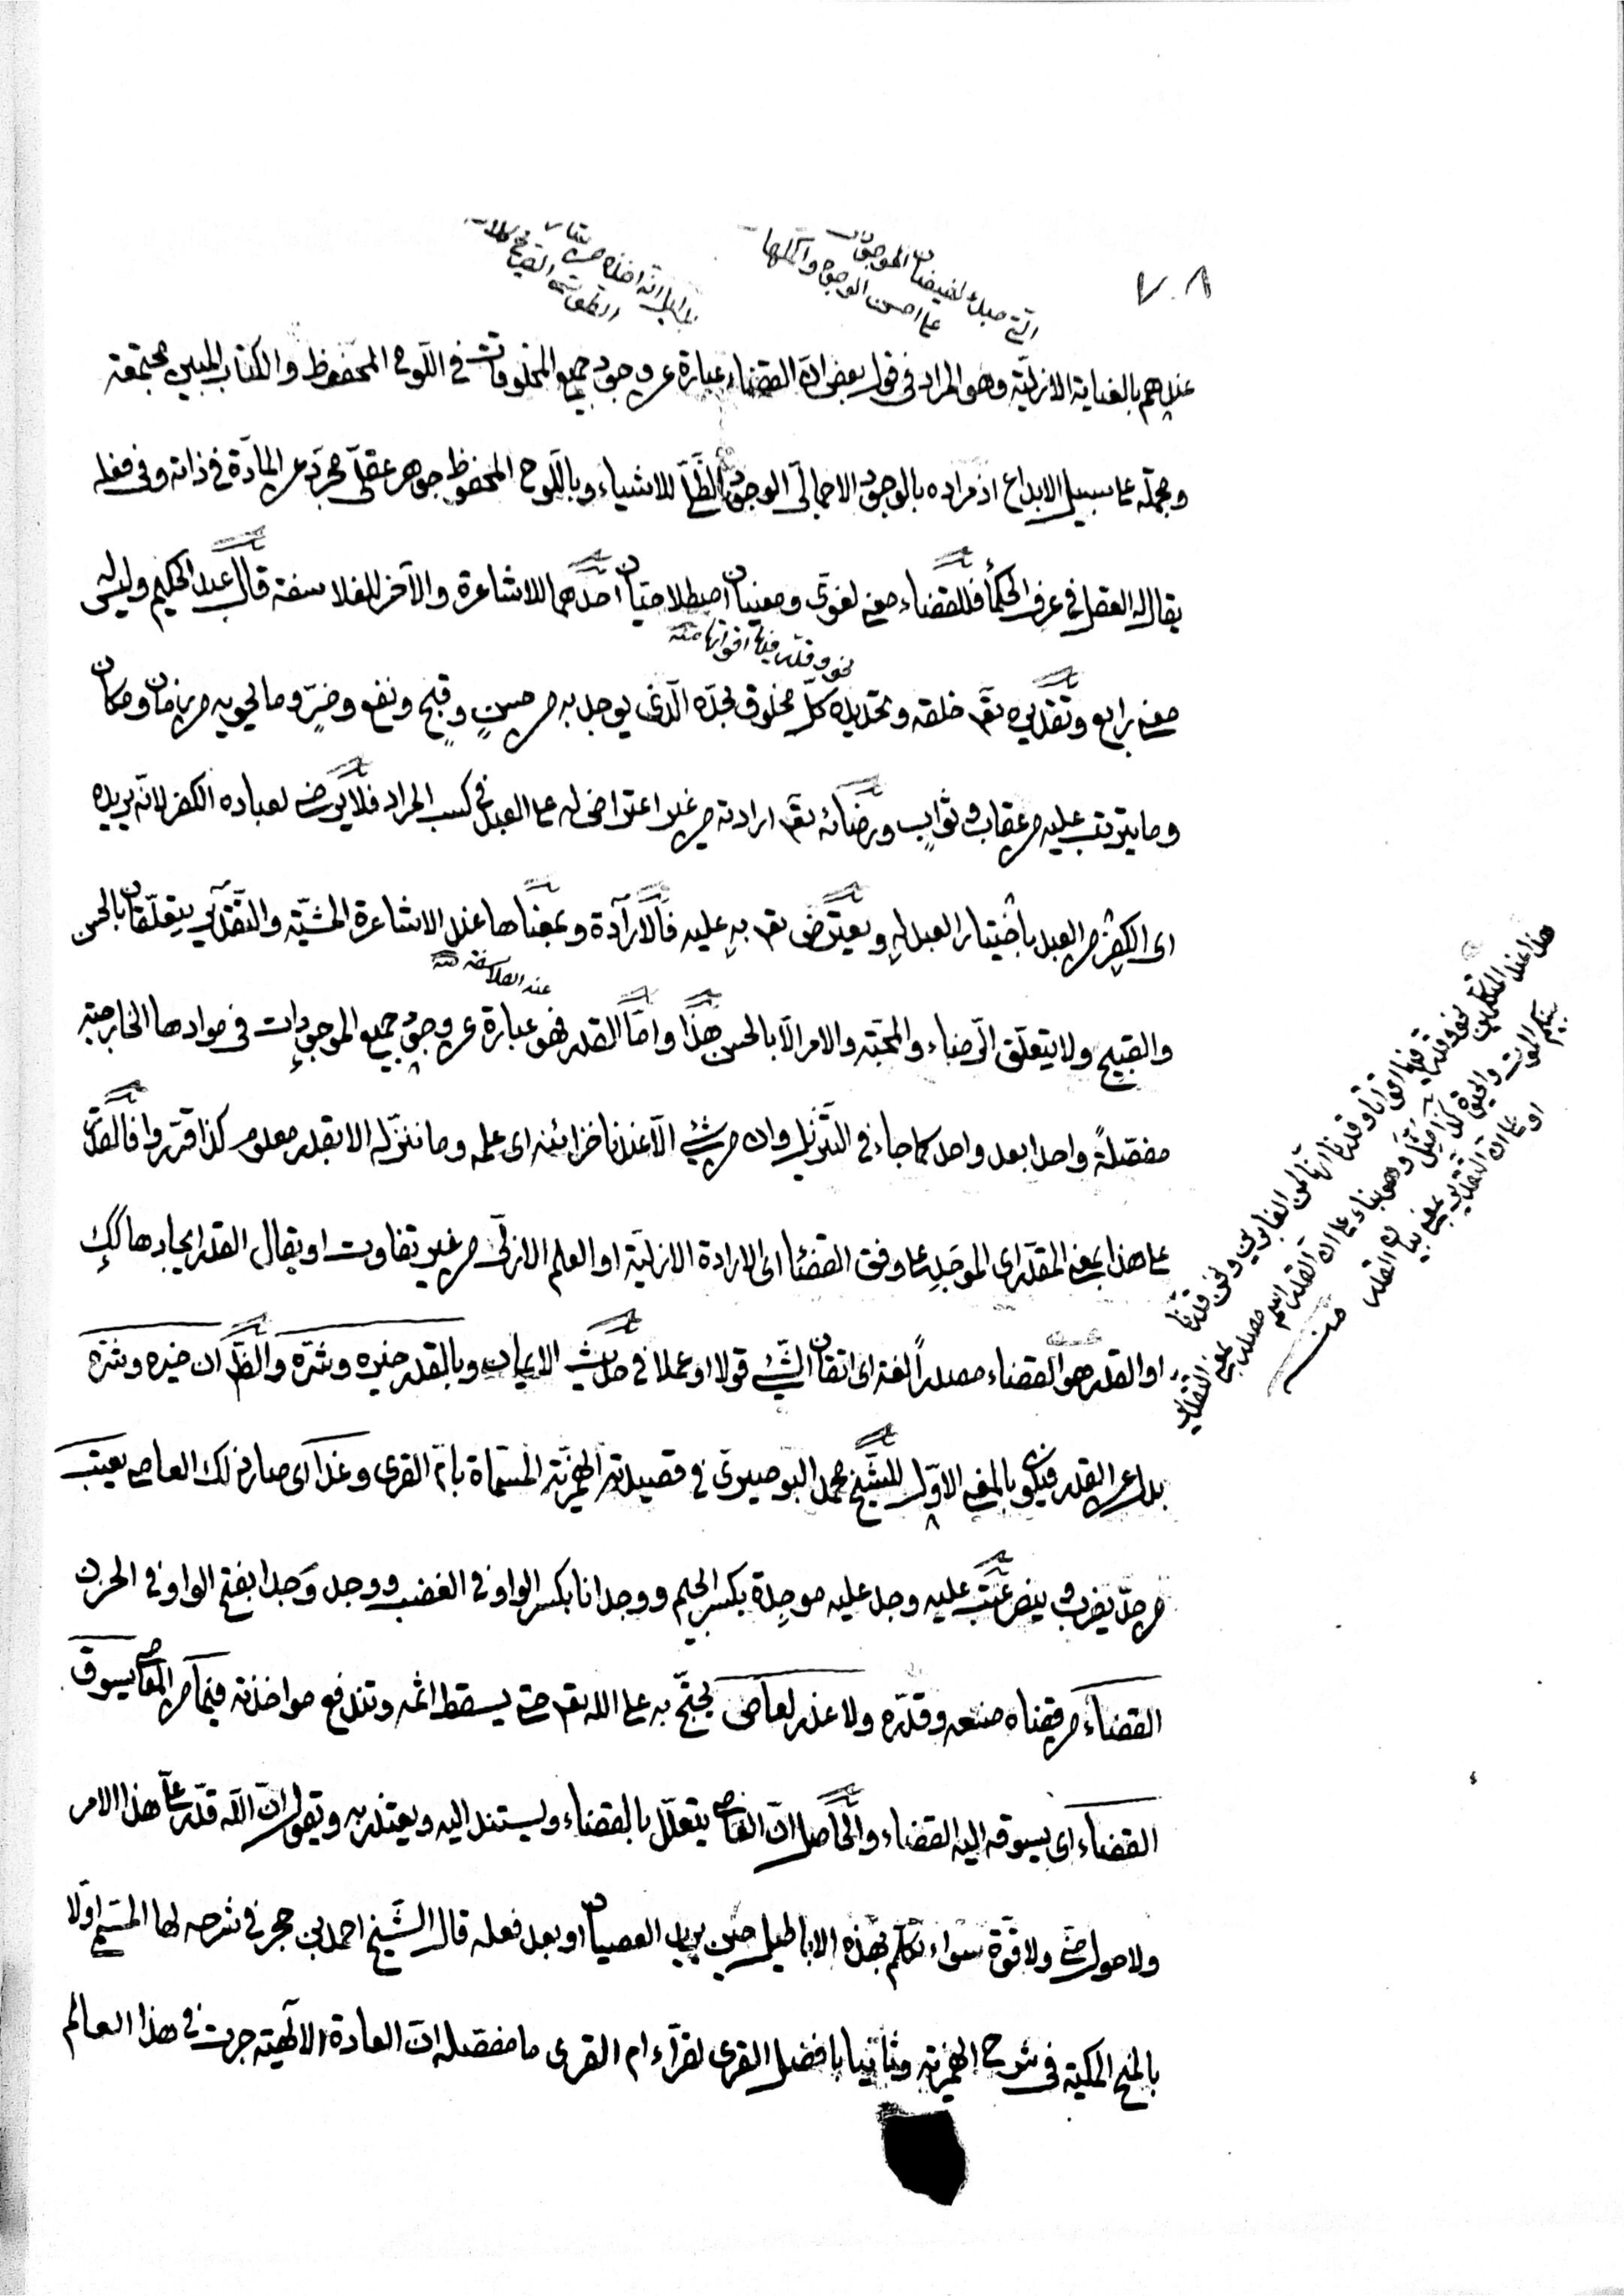 ٧٠٨
التى مبدء لفيضان الموجودات
على احسن الوجوه واكملها
عندهم بالعناية الازليّة وهو المراد فى قول بعض انّ القضاء عبارة عن وجود جميع المخلوقات فى اللّوح المحفوظ والكتاب المبين مجتمعة
ومجملة على سبيل الابداع اذ مراده بالوجود الاجمالىّ الوجود الظّلّى للاشياء وباللّوح المحفوظ جوهر عقلىّ مجرّد عن المادّة فى ذاته وفى فعله
يقال له العقل فى عرف الحكمأ فللقضاء معنى لغوىّ ومعنيان اصطلاحيّان احدهما للاشاعرة والآخر للفلاسفة قال عبد الحكيم وليس له
نحو وقدّر فيها اقواتها منه
معنى رابع وتقديره تعّ خلقه وتحديده كلّ مخلوق بحدّه الّذى يوجد به من حسنٍ وقبحٍ ونفعٍ وضرٍّ وما يحويه من زمان ومكان
وما يترتب عليه من عقاب وثوابٍ ورضائه تعّ ارادته من غير اعتراضٍ له على العبد فى كسب المراد فلا يرضى لعباده الكفر لانّه يريده
اى الكفرَ من العبد باختيار العبد له ويعترض تعّ به عليه فالارادة وبمعناها عند الاشاعرة المشيّة والتّقدير يتعلّقان بالحسن
عند الفلاسفه منه
والقبيح ولا يتعلّق الرّضاء والمحبّة والامر الّا بالحسن هذا وامّا القدر فهو عبارة عن وجود جميع الموجودات فى موادها الخارجيّة
مفصّلةً واحدا بعد واحد كما جاء فى التّنزيل وان من شئٍ الّا عندنا خزائنه اى علمه وما ننزّله الا بقدر معلوم كذا قرّروا فالقدر
على هذا بمعنى المقدّر اى الموجَد على وفق القضاء اى الارادة الازليّة او العلم الازلىّ من غير تفاوت او يقال القدر ايجادها كك
او القدر هو القضاء مصدراً لغة اى اتقان الشّئ قولا او عملا فى حديث الايمان وبالقدر خيره وشرّه والظّ ان خيره وشرّه
بدل عن القدر فيكون بالمعنى الاوّل للشّيخ محمد البوصيرىّ فى قصيدته الهمزيّة المسمّاة بامّ القرى وغدا اى صار ذلك العاصى يعتب
من حدّ يضرب وينصر عتب عليه وجد عليه موجِدة بكسر الجيم ووجدانا بكسر الواو فى الغضب ووجد وَجدا بفتح الواو فى الحزن
القضاءَ من قضاه صنعه وقدّره ولا عذر لعاصٍ يحتجّ به على الله تعّ حتى يسقط اثمه وتندفع مواخذته فيما من المعاصى يسوق
القضاء اى يسوقه اليه القضاء والحاصل انّ العاصى يتعلّل بالقضاء ويستند اليه ويعتذر به ويقول انّ الله قدّر علىّ هذا الامر
ولا حول منى ولا قوّة سواء تكلّم بهذه الاباطيل حين يريد العصيان او بعد فعله قال الشّيخ احمد بن حجر فى شرحه لها المسمّى اوّلا
بالمنح المكيّة فى شرح الهمزيّة وثانيا بافضل القرى لقرّاء ام القرى ما مفصّله انّ العادة الالٓهيّة جرت فى هذا العالم
هذا عند المتكلمين
نحو وقدّر فيها اقواتها وقدّرنا انّها لمن الغابرين ونحن قدّرنا
بينكم الموت
وهو بناء على ان القدر اسم مصدر بمعنى التقدير
او على ان التقدير بمعنى بيان القدر منه